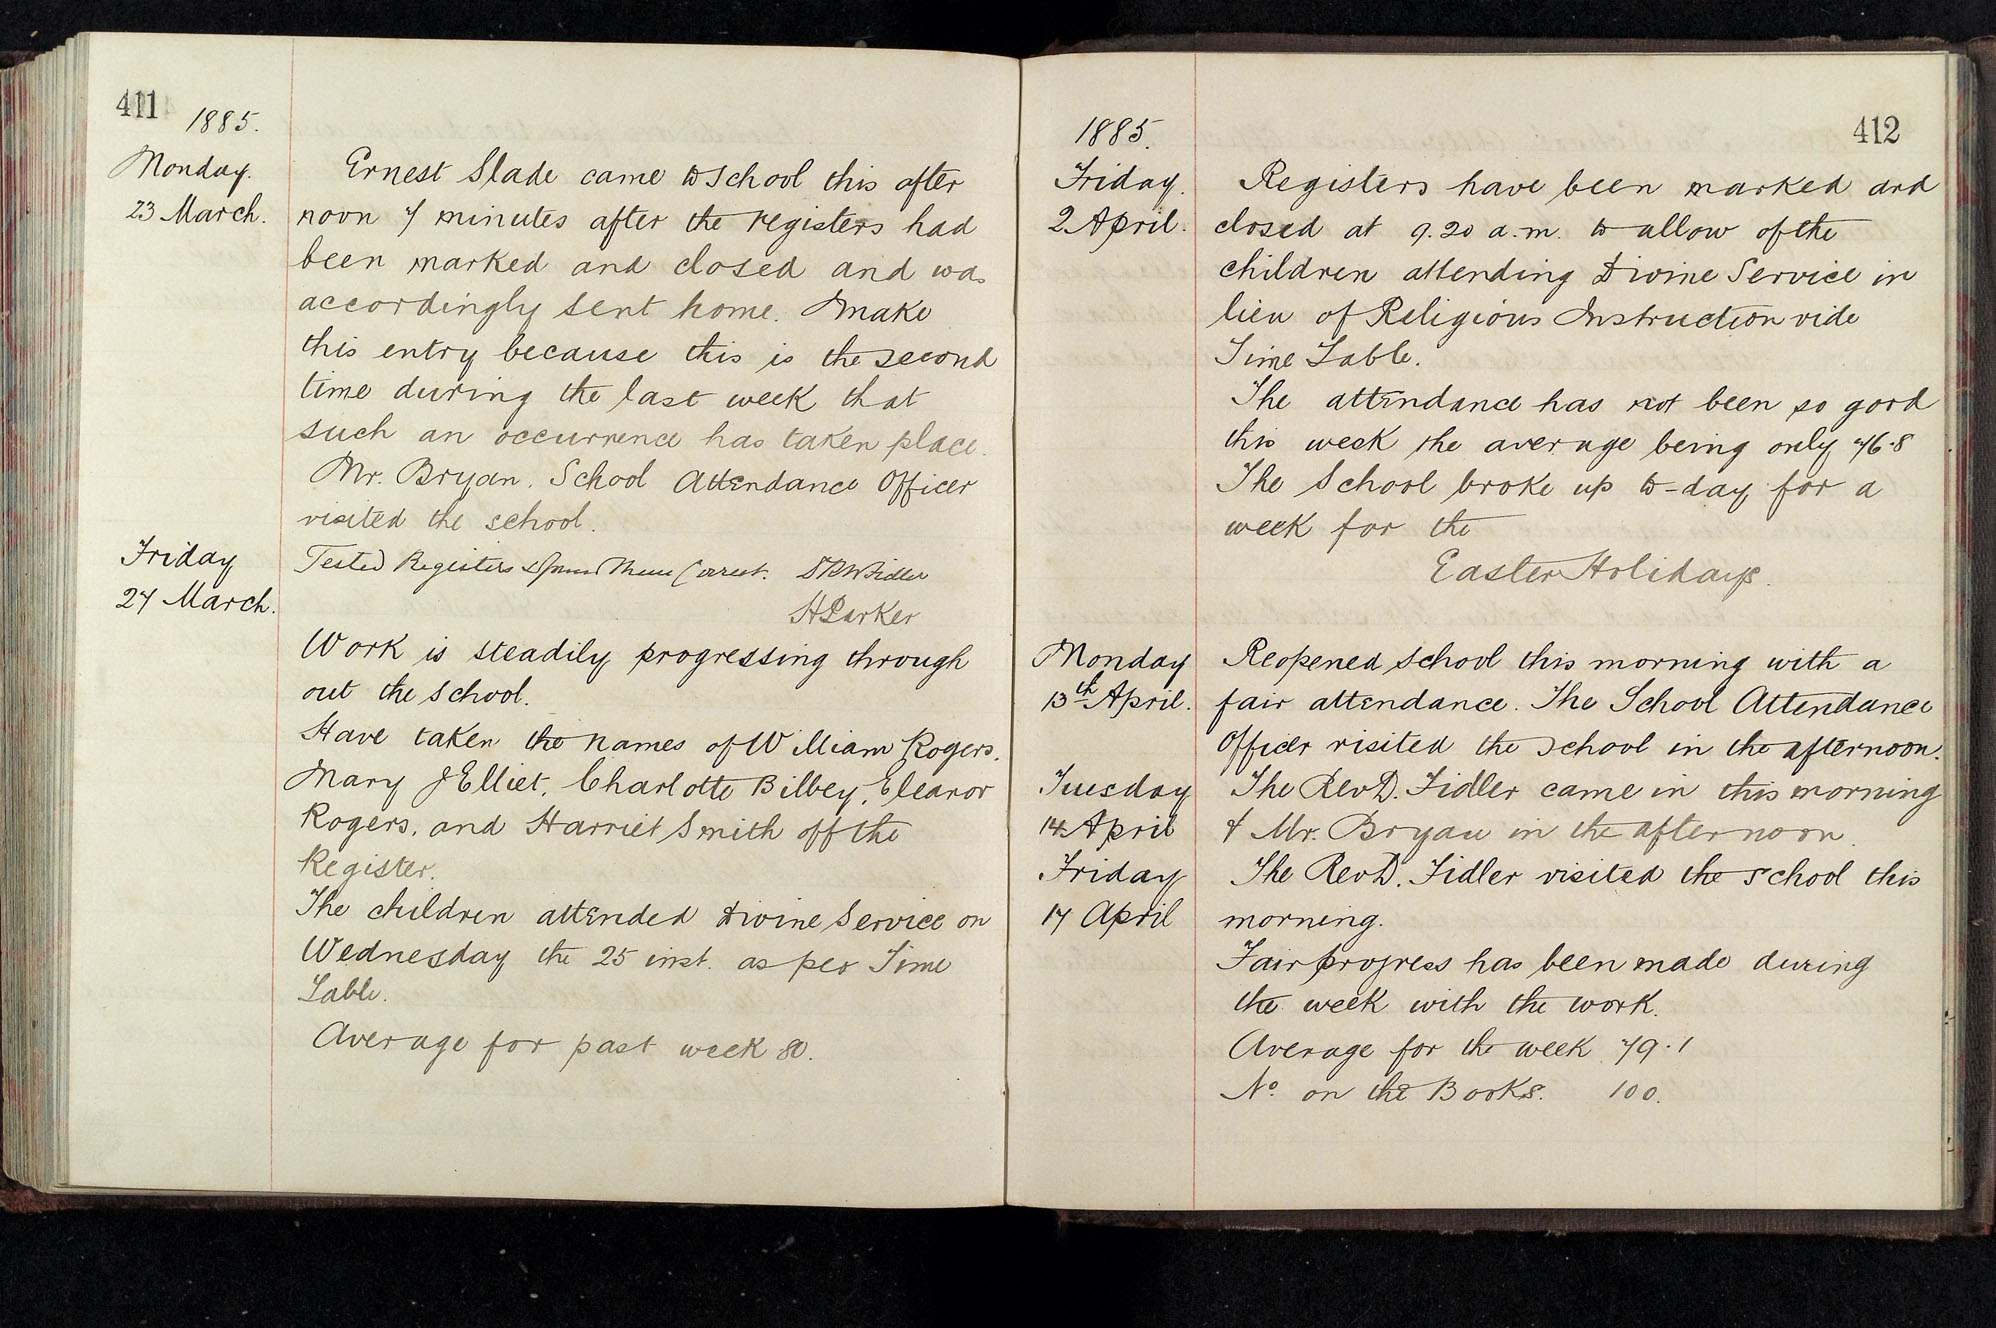 411
1885.
Monday.
23 March.
Ernest Slade came to school this after
noon 7 minutes after the registers had
been marked and closed and was
accordingly sent home. I make
this entry because this is the second
time during the last week that
such an occurrence has taken place.
Mr. Bryan, School Attendance Officer
visited the school.
Friday
27 March.
Tested Registers & found them correct. Fidler
H Parker
Work is steadily progressing through
out the school.
Have taken the names of William Rogers,
Mary J Elliet, Charlotte Bilbey, Eleanor
Rogers, and Harriet Smith off the
Register.
The children attended Divine Service on
Wednesday the 25 inst. as per Time
Table.
Average for past week 80.
412
1885.
Friday.
2 April.
Registers have been marked and
closed at 9.20 a.m. to allow of the
children attending Divine Service in
lieu of Religious Instruction vide
Time Table.
The attendance has not been so good
this week the average being only 76.8
The School broke up to-day for a
week for the
Easter Holidays.
Monday
13th April.
Reopened school this morning with a
fair attendance. The School Attendance
Officer visited the school in the afternoon.
Tuesday
14 April
The RevD. Fidler came in this morning
& Mr. Bryan in the afternoon.
Friday
17 April
The RevD. Fidler visited the school this
morning.
Fair progress has been made during
the week with the work.
Average for the week 79.1
No. on the Books. 100.